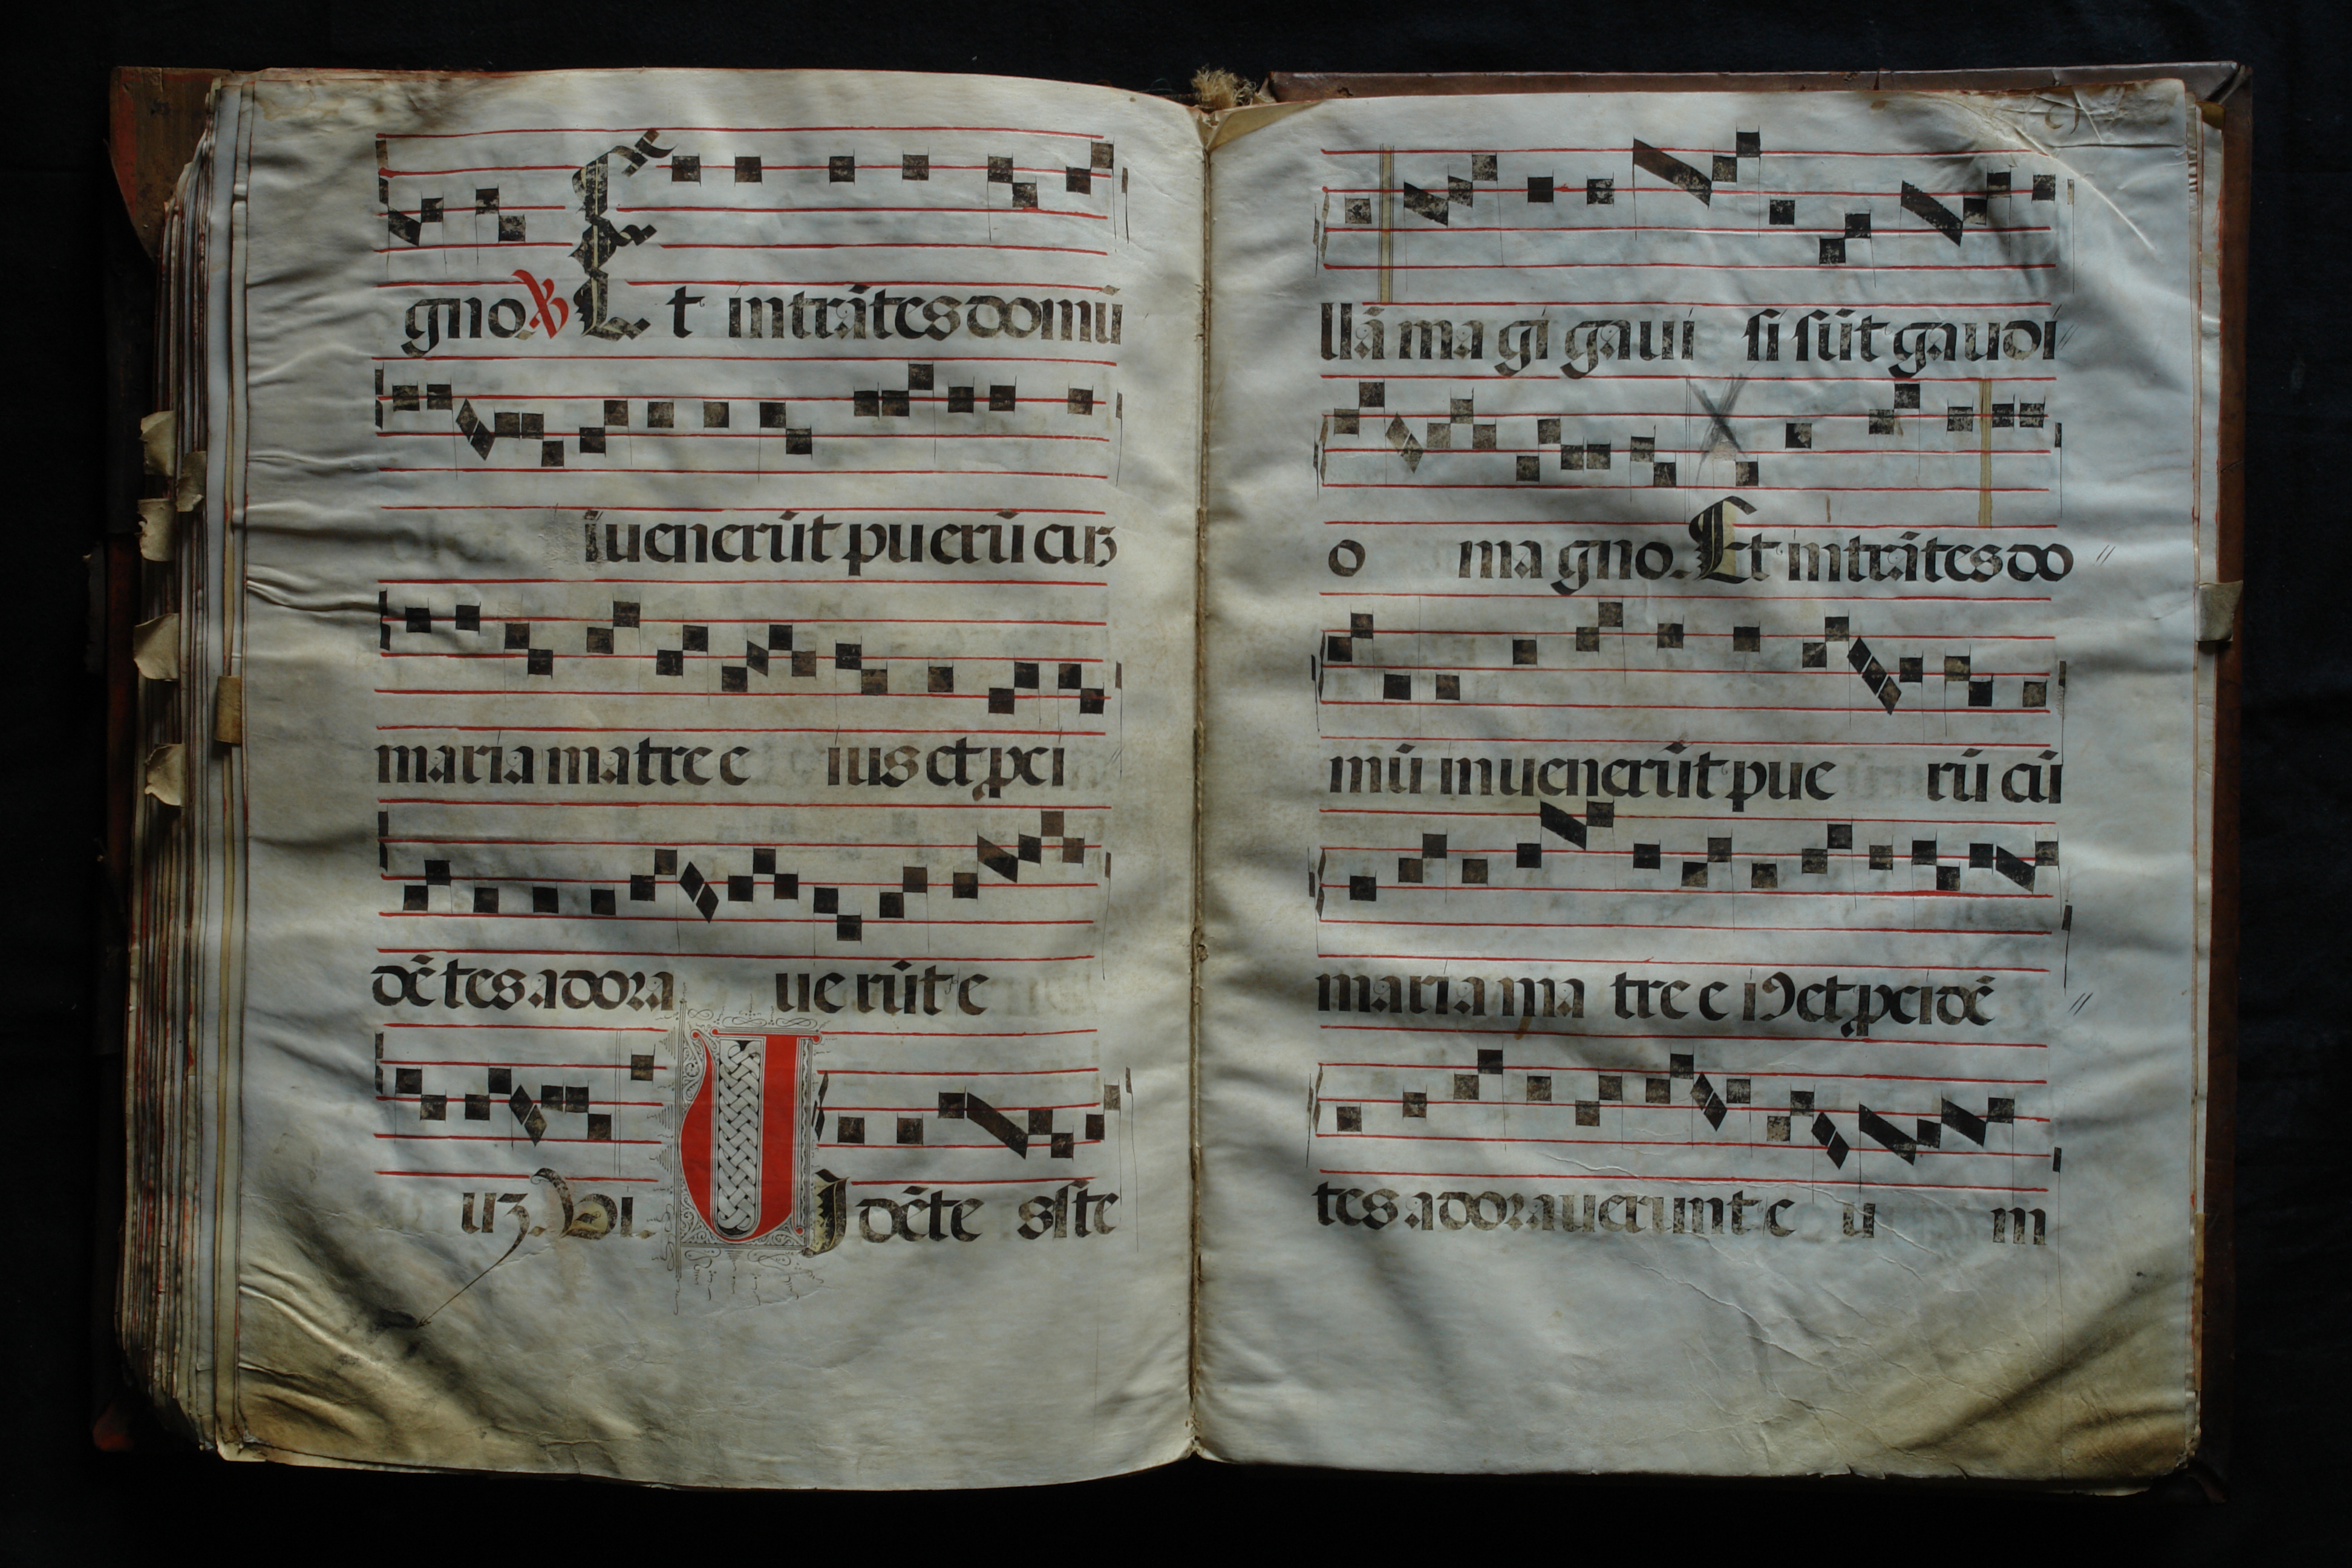 gno ℣ Et intrātes domū
īuenerūt puerū cuʒ
maria matre e ius et ꝓci
dētes adora uerūt e
uʒ. Vi. VIdēte s ste
llā magi gaui si sūt gaudi
o magno. Et intrātes do
mū inuenerūt pue rū cū
maria ma tre e iꝰ et ꝓcidē
tes adorauerunt e u m